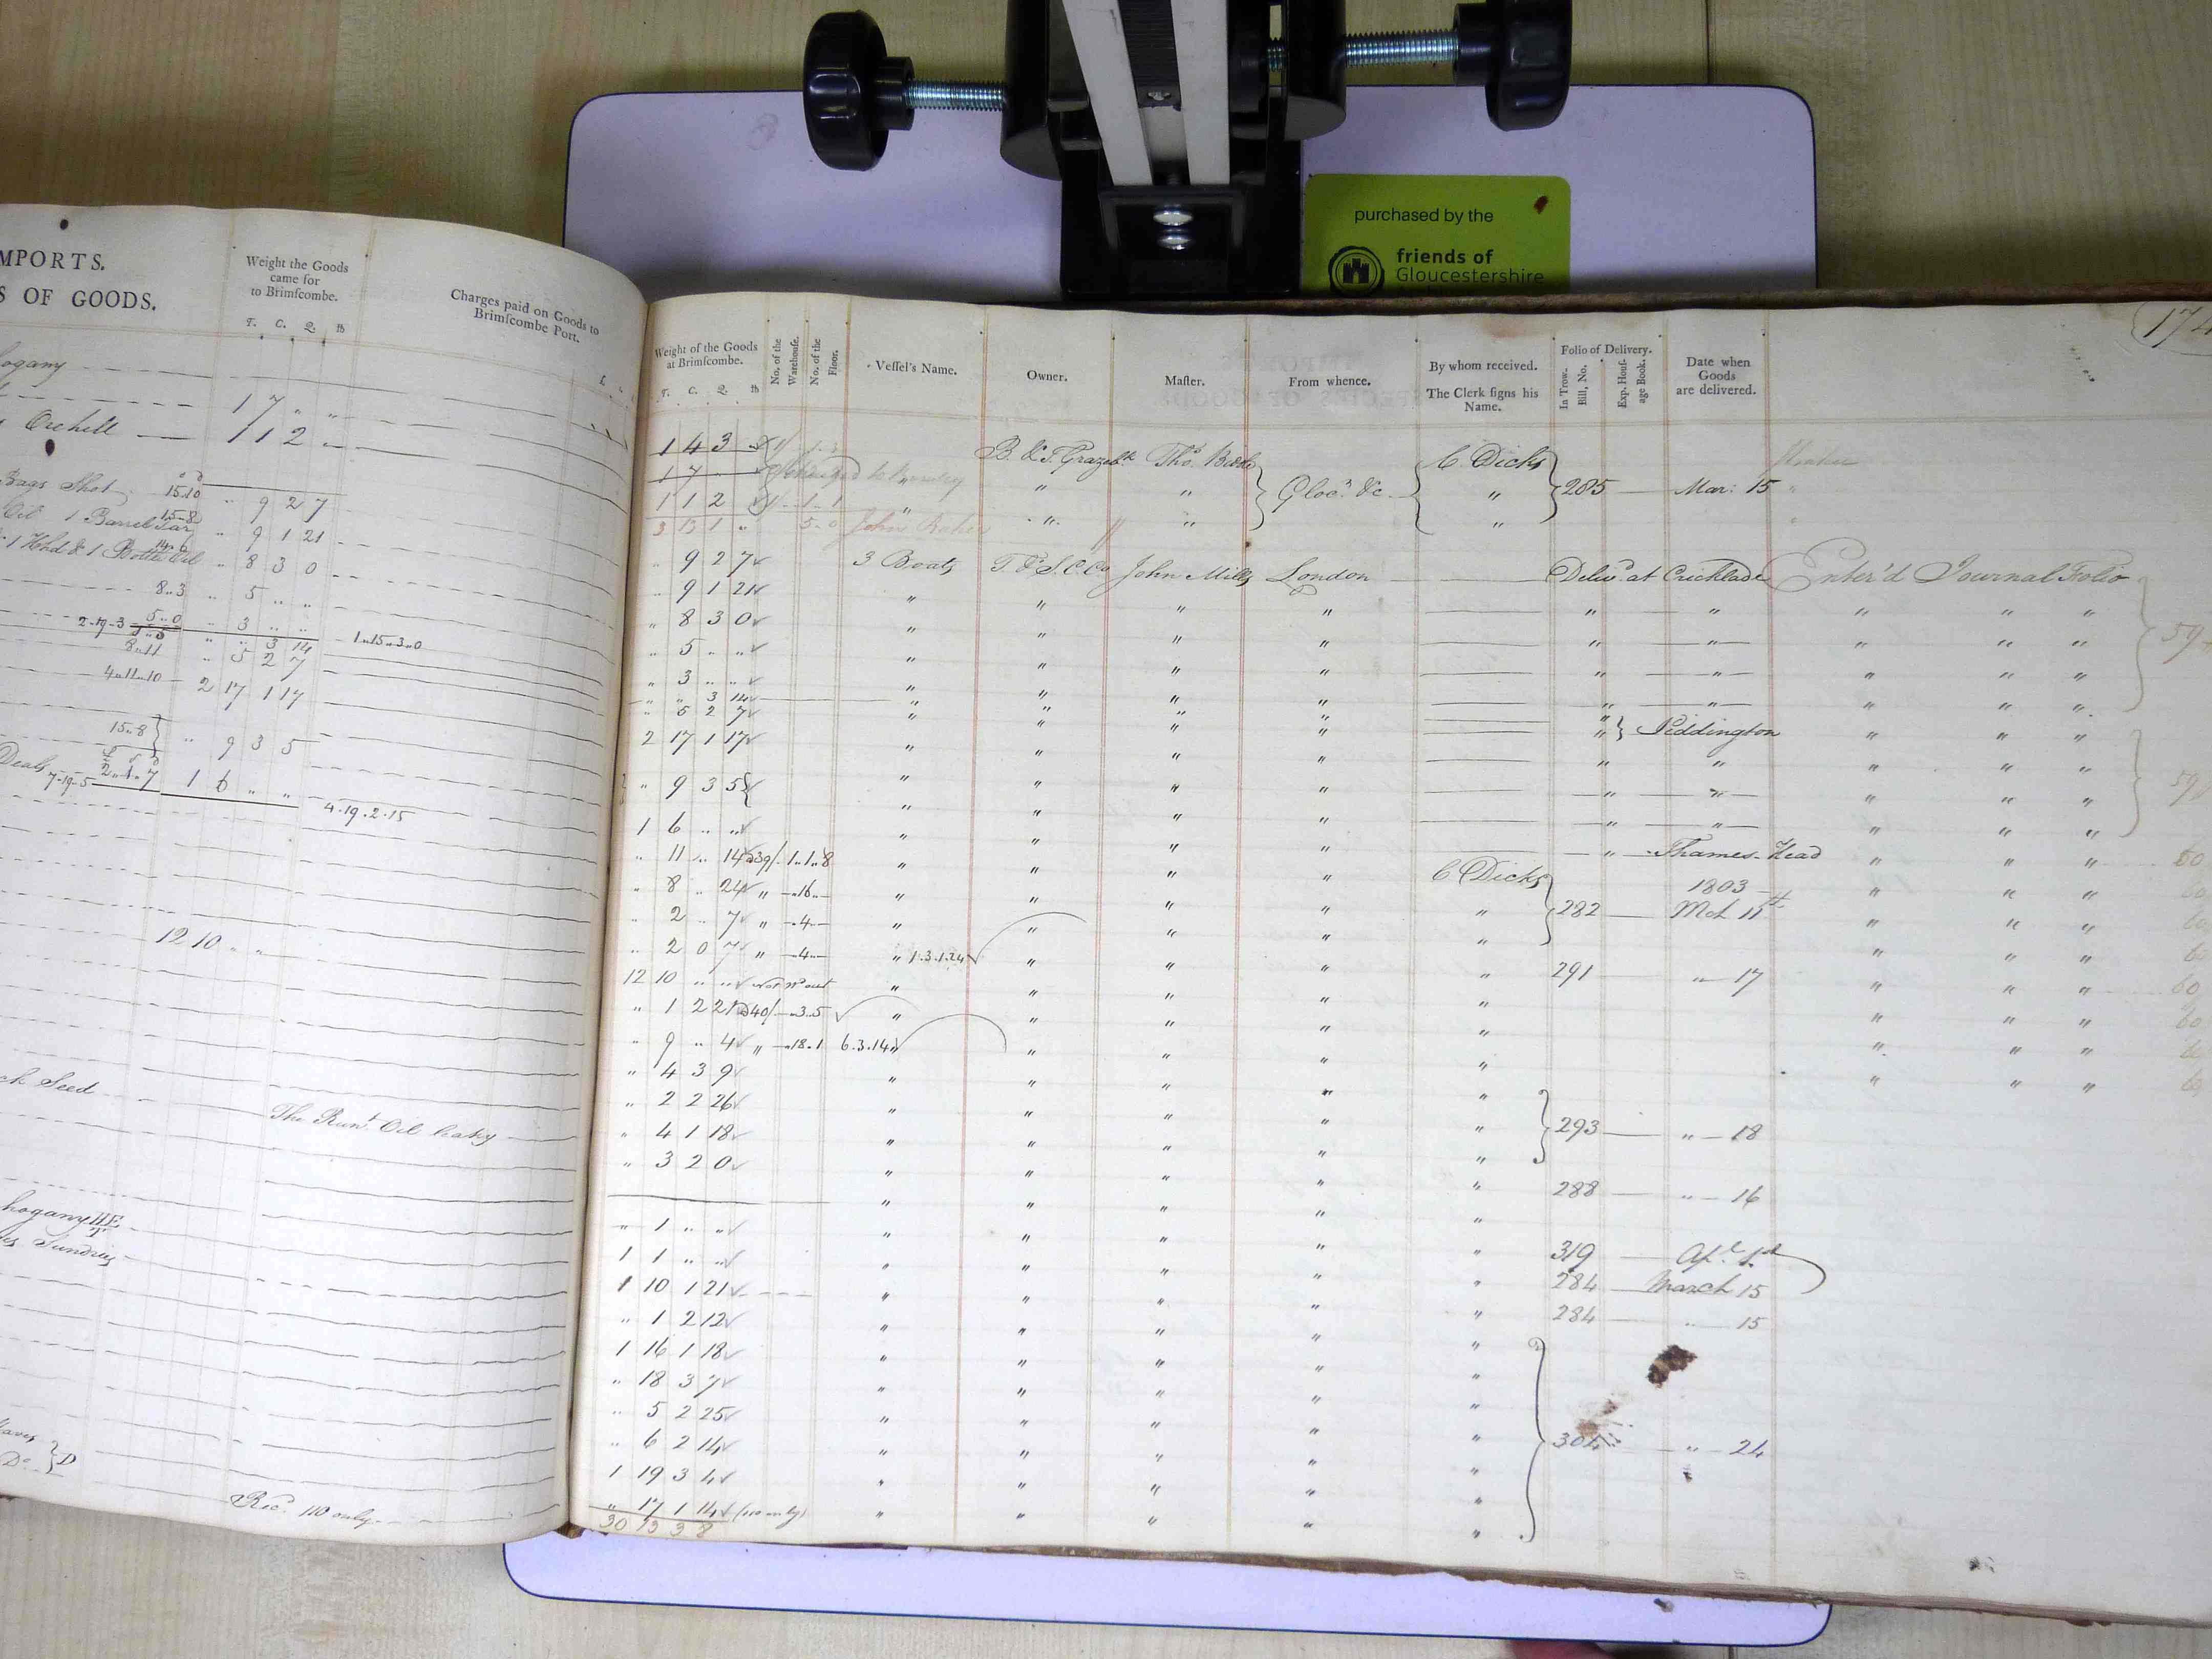 purchased by the
friends of
Gloucestershire
MPORTS.
S OF GOODS.
Weight the Goods
came for
to Brimscombe.
T. C. Q. lb
Charges paid on Goods to
Brimscombe Port.
ogany
17 " "
Orchill 1 12 "
Bags Shot 15.10 " 9 2 7
Oil 1 Barrel Tar 15-8 " 9 1 21
1 Hhd & 1 Bottle Oil " 8 3 0
8..3 " 5 " "
5..0 " 3 " "
2-19-3 " " 3 14 1..15..3..0
8..11 " 5 2 7
4..11..10 2 17 1 17
15..8 } " 9 3 5
Deals 2..1..7 1 6 " "
7-19-5 4.19.2.15
12 10 " "
ch Seed
The Runt. Oil leaky
hogany HE
es Sundries
Do. } D
Recd. 110 only
174
Weight of the Goods
at Brimscombe.
T. C. Q. lb
No. of the
Warehouse.
No. of the
Floor.
Vessel's Name.
Owner.
Master.
From whence.
By whom received.
The Clerk signs his
Name.
Folio of Delivery.
In Trow-
Bill, No.
Exp. Hous-
age Book.
Date when
Goods
are delivered.
1 4 3 B. & T. Grazebk. Thos. C. Dicks
1 7 " " " Glocr. &c. " 285 Mar: 15
1 1 2 " " " "
3 13 1 " 5-0 John
" 9 2 7 3 Boats T. & S. C. Co. John Mills London Delivd. at Cricklade Enter'd Journal Folio
" 9 1 21 " " " " " " " " "
" 8 3 0 " " " " " " " " " 59
" 5 " " " " " " " " " " "
" 3 " " " " " " " " " " "
" " 3 14 " " " " "
" 5 2 7 " " " " " } Liddington " " "
2 17 1 17 " " " " " " " " "
" 9 3 5 " " " " " " " " " 59
1 6 " " " " " " " " " " "
" 11 " 14 239/ 1..1..8 " " " " " Thames Head " " " 60
" 8 " 24 " -..16..- " " " " C Dicks 1803 " " " 60
" 2 " 7 " -..4..- " " " " " 282 Mch 11th " " " 60
" 2 0 7 " -..4..- " 1.3.1.24 " " " " " " " 60
12 10 " " not wd. out " " " " " 291 " 17 " " " 60
" 1 2 21 240/ -..3..5 " " " " " " " " 60
" 9 " 4 " -..18..1 6.3.14 " " " " " " " " 60
" 4 3 9 " " " " " " " " 60
" 2 2 26 " " " " "
" 4 1 18 " " " " " 293 " 18
" 3 2 0 " " " " "
" " " " " 288 " 16
" 1 " " " " " " "
1 1 " " " " " " " 319 Apl. 1st
1 10 1 21 " " " " " 284 March 15
" 1 2 12 " " " " " 284 " 15
1 16 1 18 " " " " "
" 18 3 7 " " " " "
" 5 2 25 " " " " "
" 6 2 14 " " " " " 304 " 24
1 19 3 4 " " " " "
" 17 1 14 (110 only) " " " " "
30 13 3 8